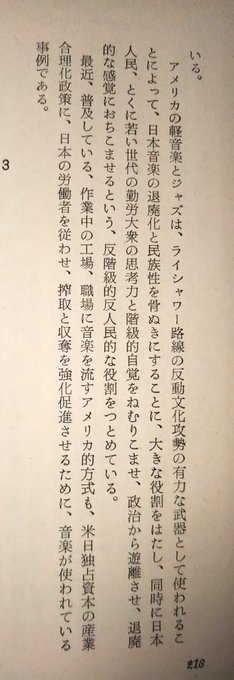 いる。
アメリカの軽音楽とジャズは、ライシャワー路線の反動文化攻勢の有力な武器として使われるこ
とによって、日本音楽の退廃化と民族性を骨ぬきにすることに、大きな役割をはたし、同時に日本
人民、とくに若い世代の勤労大衆の思考力と階級的自覚をねむりこませ、政治から遊離させ、退廃
的な感覚におちこませるという、反階級的反人民的な役割をつとめている。
最近、普及している、作業中の工場、職場に音楽を流すアメリカ的方式も、米日独占資本の産業
合理化政策に、日本の労働者を従わせ、搾取と収奪を強化促進させるために、音楽が使われている
事例である。
3
216